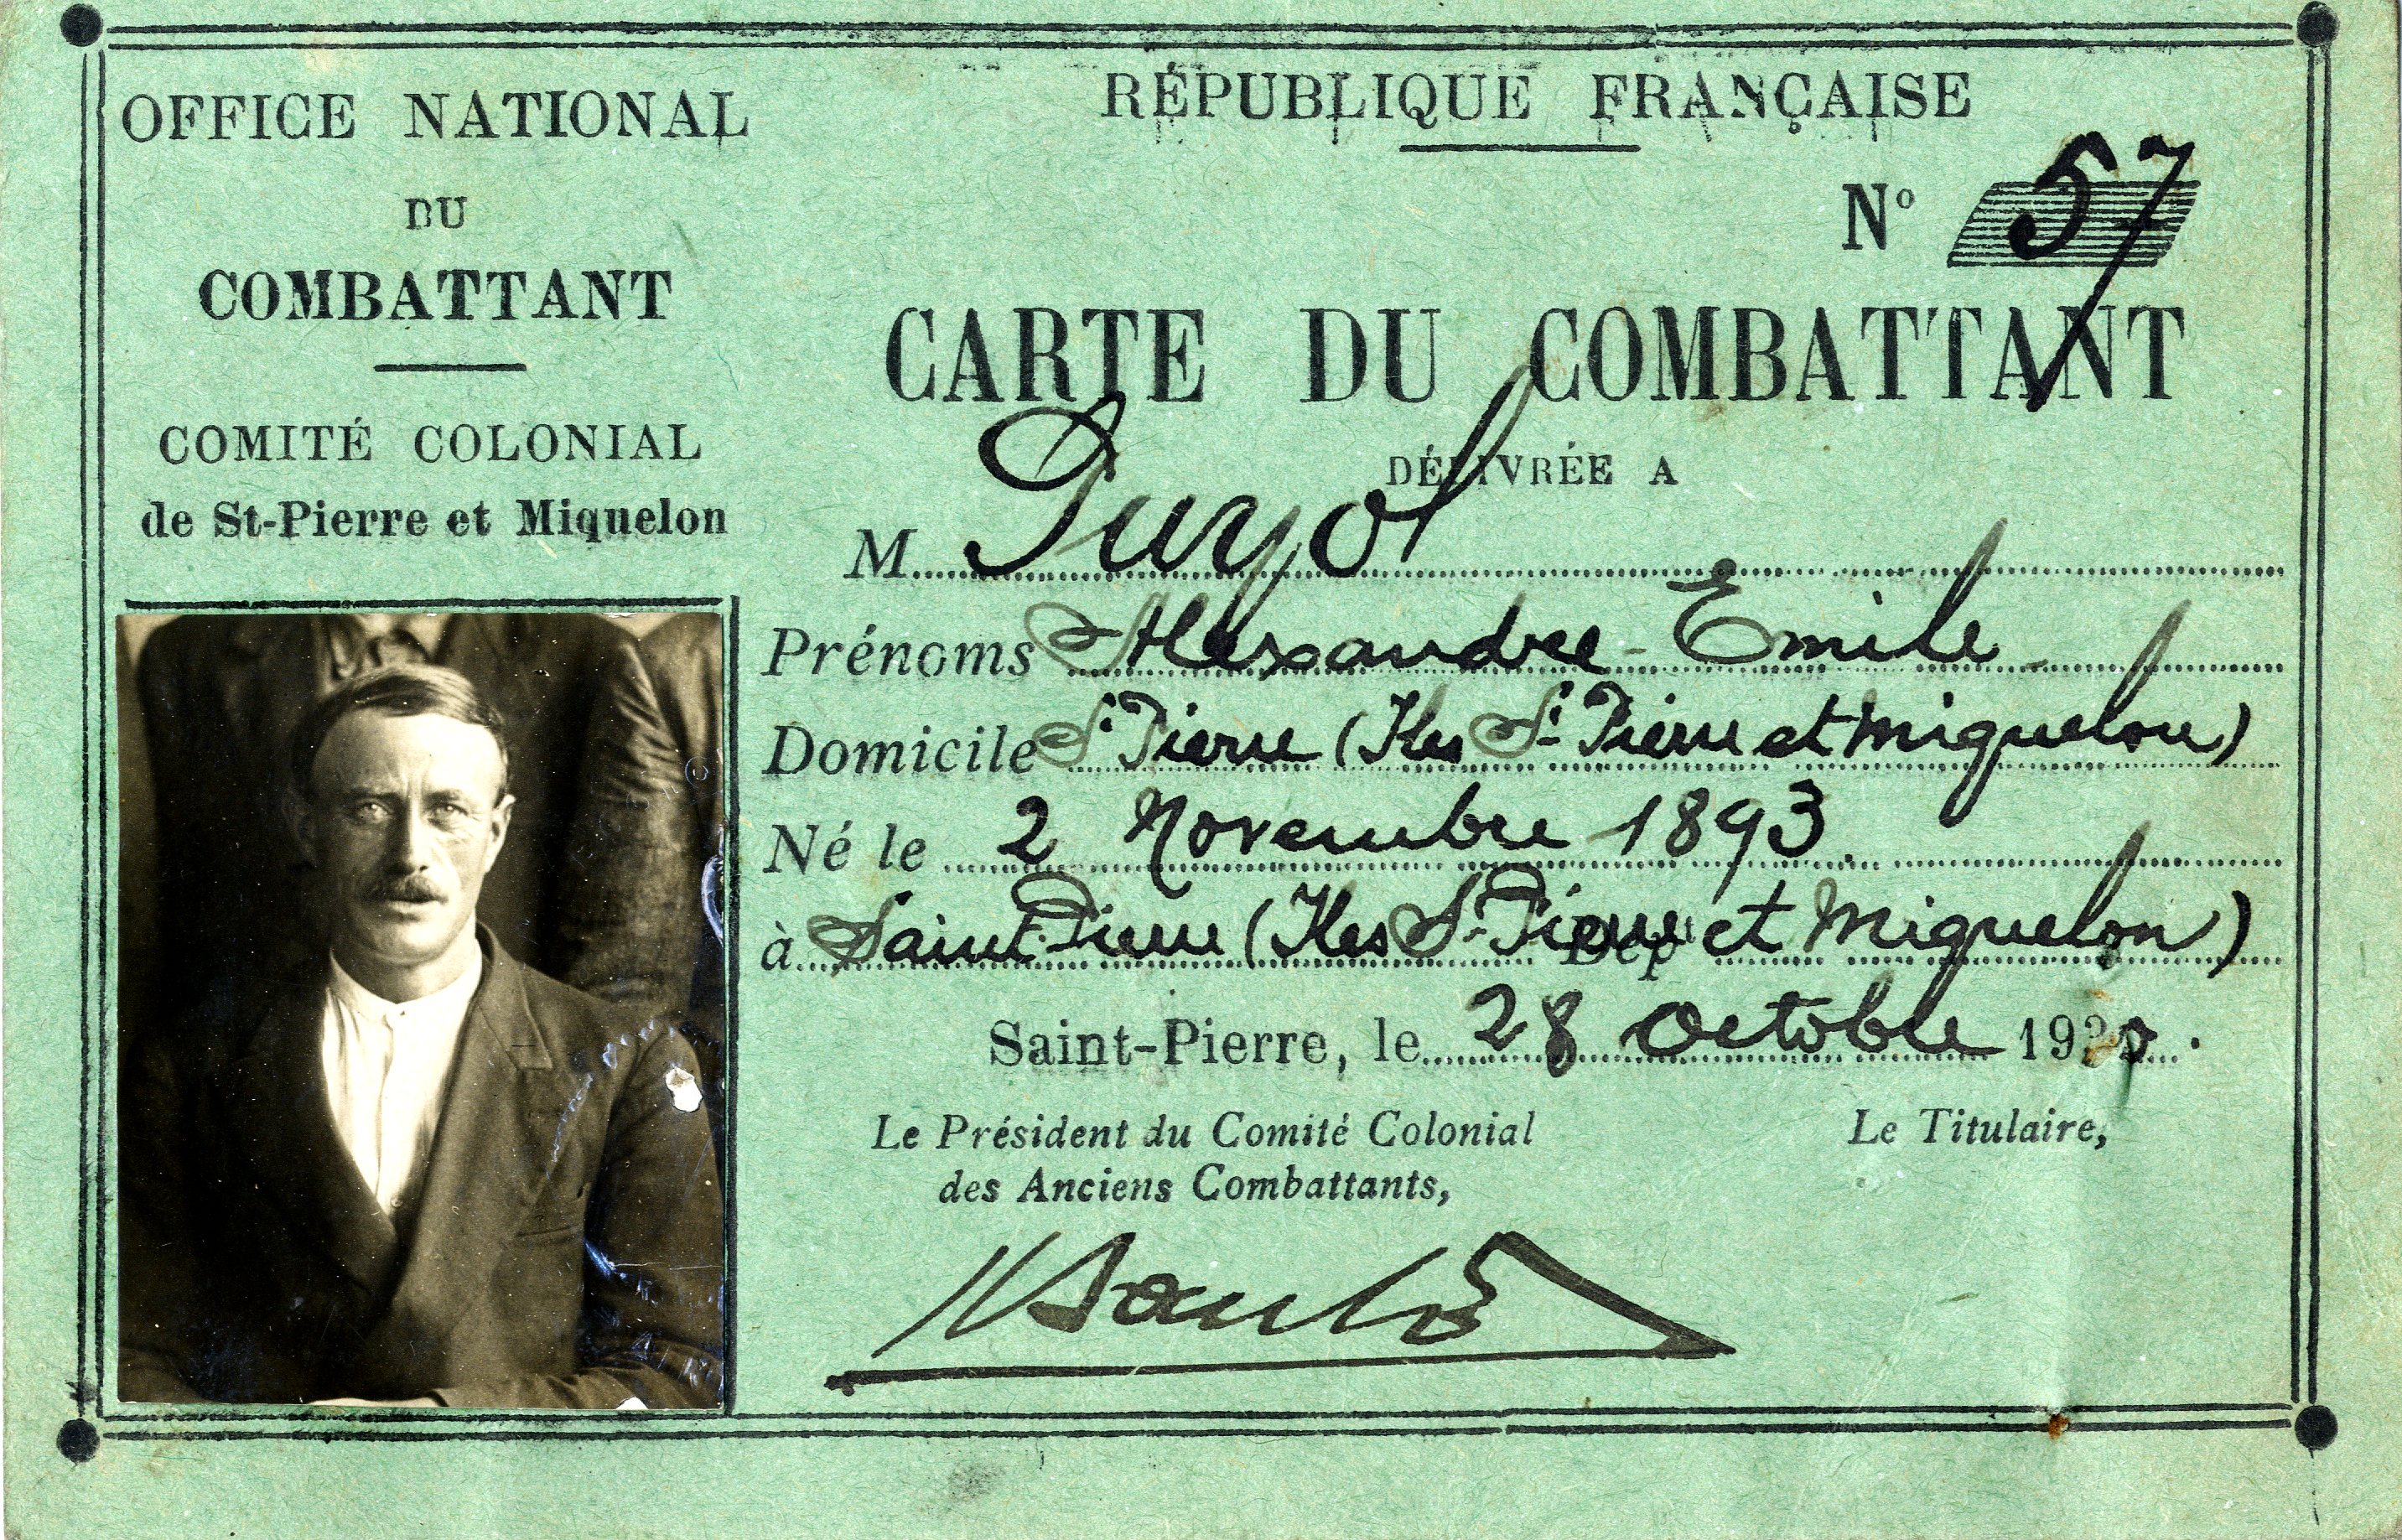 OFFICE NATIONAL
DU
COMBATTANT
COMITÉ COLONIAL
de St-Pierre et Miquelon
RÉPUBLIQUE FRANÇAISE
Nº 57
CARTE DU COMBATTANT
DÉLIVRÉE A
M. Puyol
Prénoms Alexandre-Emile
Domicile St Pierre (Iles St-Pierre et Miquelon)
Né le 2 Novembre 1893.
à Saint-Pierre (Iles St-Pierre Dépt et Miquelon)
Saint-Pierre, le 28 Octobre
Le Président du Comité Colonial
des Anciens Combattants,
Le Titulaire,